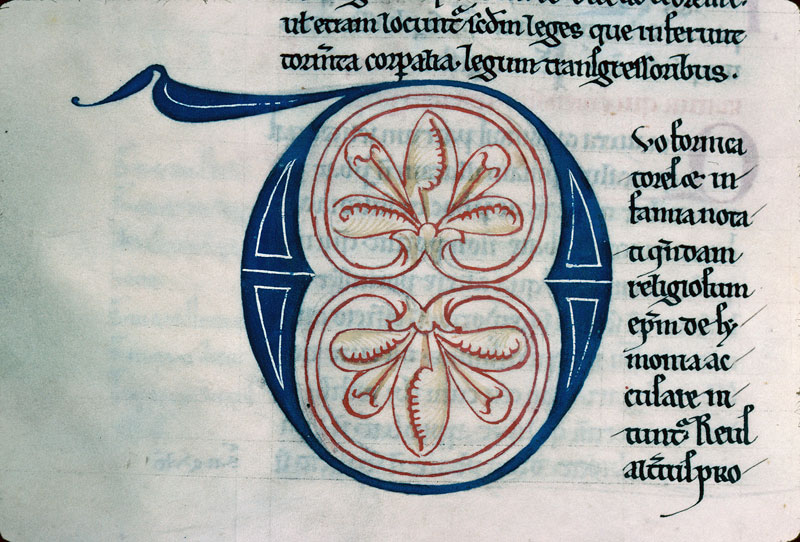 ut etiam locunt᷑ sed in leges que inferunt
torm̅ta corpalia. legum transgressoribus.
D
vo fornica
tores ⁊ in
famia nota
ti qͥndam
religiosum
ep̅m de sy
monia ac
cusare in
tunt᷑. Reus
alt̅ius pro